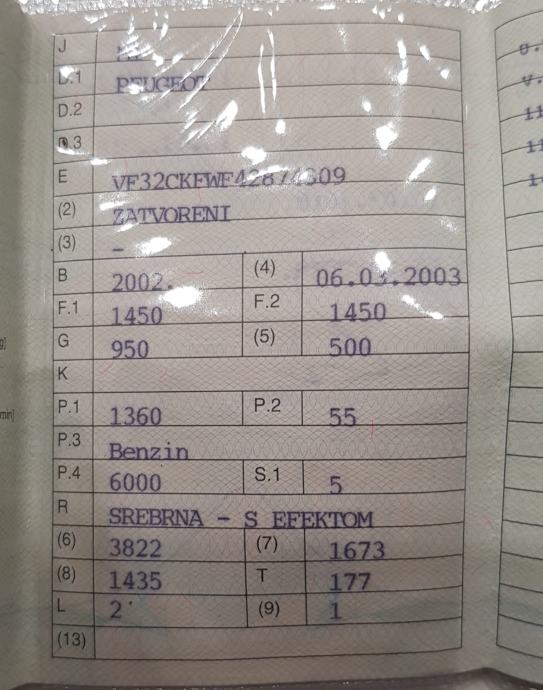 J
D.1 PEUGEOT
D.2
D.3
E
(2) ZATVORENI
(3) -
B 2002. (4) 06.03.2003
F.1 1450 F.2 1450
G 950 (5) 500
K
P.1 1360 P.2 55
P.3 Benzin
P.4 6000 S.1 5
R SREBRNA - S EFEKTOM
(6) 3822 (7) 1673
(8) 1435 T 177
L 2 (9) 1
(13)